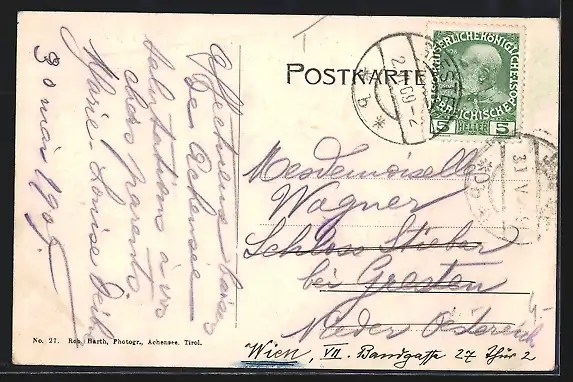 POSTKARTE
KAISERLICHE KÖNIGLICHE ÖSTERREICHISCHE POST
5 HELLER 5
Affectueux baisers
de Achensee
Salutations à vos
chers parents
Marie-Louise
30 mai 1909
Mesdemoiselles
Wagner
Schloss Stiebar
bei Gresten
Nieder Österreich
Wien, VII. Bandgasse 27 Thür 2
No. 27. Rob. Harth, Photogr., Achensee, Tirol.